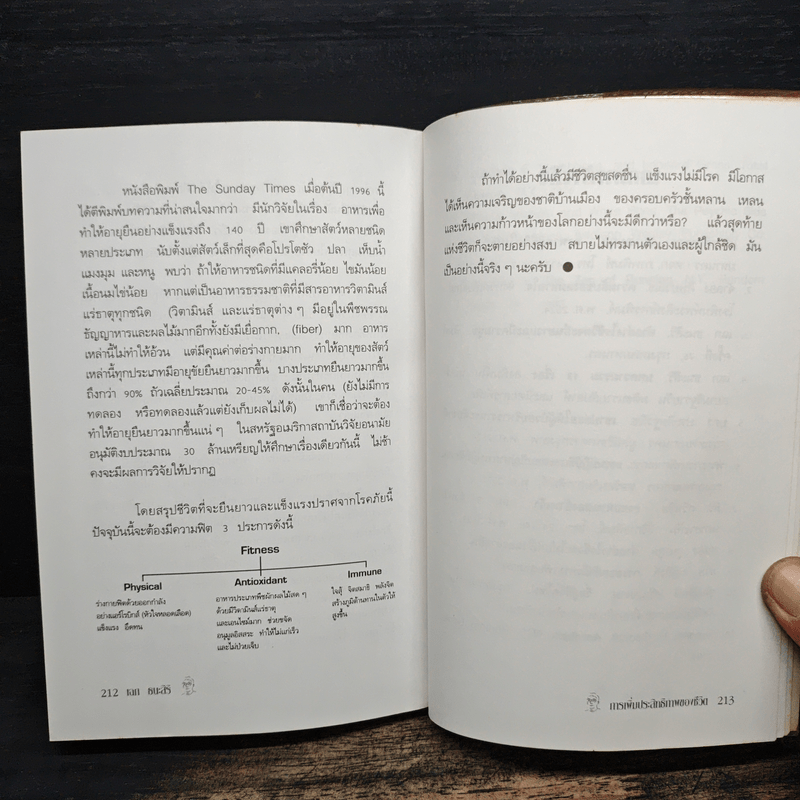 หนังสือพิมพ์ The Sunday Times เมื่อต้นปี 1996 นี้
ได้ตีพิมพ์บทความที่น่าสนใจมากว่า มีนักวิจัยในเรื่อง อาหารเพื่อ
ทำให้อายุยืนอย่างแข็งแรงถึง 140 ปี เขาศึกษาสัตว์หลายชนิด
หลายประเภท นับตั้งแต่สัตว์เล็กที่สุดคือโปรโตซัว ปลา เห็บน้ำ
แมงมุม และหนู พบว่า ถ้าให้อาหารชนิดที่มีแคลอรี่น้อย ไขมันน้อย
เนื้อนมไข่น้อย หากแต่เป็นอาหารธรรมชาติที่มีสารอาหารวิตามินส์
แร่ธาตุทุกชนิด (วิตามินส์ และแร่ธาตุต่าง ๆ มีอยู่ในพืชพรรณ
ธัญญาหารและผลไม้มากอีกทั้งยังมีเยื่อกาก. (fiber) มาก อาหาร
เหล่านี้ไม่ทำให้อ้วน แต่มีคุณค่าต่อร่างกายมาก ทำให้อายุของสัตว์
เหล่านี้ทุกประเภทมีอายุขัยยืนยาวมากขึ้น บางประเภทยืนยาวมากขึ้น
ถึงกว่า 90% ถัวเฉลี่ยประมาณ 20-45% ดังนั้นในคน (ยังไม่มีการ
ทดลอง หรือทดลองแล้วแต่ยังเก็บผลไม่ได้) เขาก็เชื่อว่าจะต้อง
ทำให้อายุยืนยาวมากขึ้นแน่ ๆ ในสหรัฐอเมริกาสถาบันวิจัยอนามัย
อนุมัติงบประมาณ 30 ล้านเหรียญให้ศึกษาเรื่องเดียวกันนี้ ไม่ช้า
คงจะมีผลการวิจัยให้ปรากฏ
โดยสรุปชีวิตที่จะยืนยาวและแข็งแรงปราศจากโรคภัยนี้
ปัจจุบันนี้จะต้องมีความฟิต 3 ประการดังนี้
Fitness
Physical
ร่างกายฟิตด้วยออกกำลัง
อย่างแอร์โรบิกส์ (หัวใจหลอดเลือด)
แข็งแรง อึดทน
Antioxidant
อาหารประเภทพืชผักผลไม้สด ๆ
ด้วยมีวิตามินส์แร่ธาตุ
และเอนไซม์มาก ช่วยขจัด
อนุมูลอิสสระ ทำให้ไม่แก่เร็ว
และไม่ป่วยเจ็บ
Immune
ใจสู้ จิตสมาธิ พลังจิต
สร้างภูมิต้านทานในตัวให้
สูงขึ้น
212 เฉก ธนะสิริ
ถ้าทำได้อย่างนี้แล้วมีชีวิตสุขสดชื่น แข็งแรงไม่มีโรค มีโอกาส
ได้เห็นความเจริญของชาติบ้านเมือง ของครอบครัวชั้นหลาน เหลน
และเห็นความก้าวหน้าของโลกอย่างนี้จะมีดีกว่าหรือ? แล้วสุดท้าย
แห่งชีวิตก็จะตายอย่างสงบ สบายไม่ทรมานตัวเองและผู้ใกล้ชิด มัน
เป็นอย่างนี้จริง ๆ นะครับ ●
การเพิ่มประสิทธิภาพของชีวิต 213